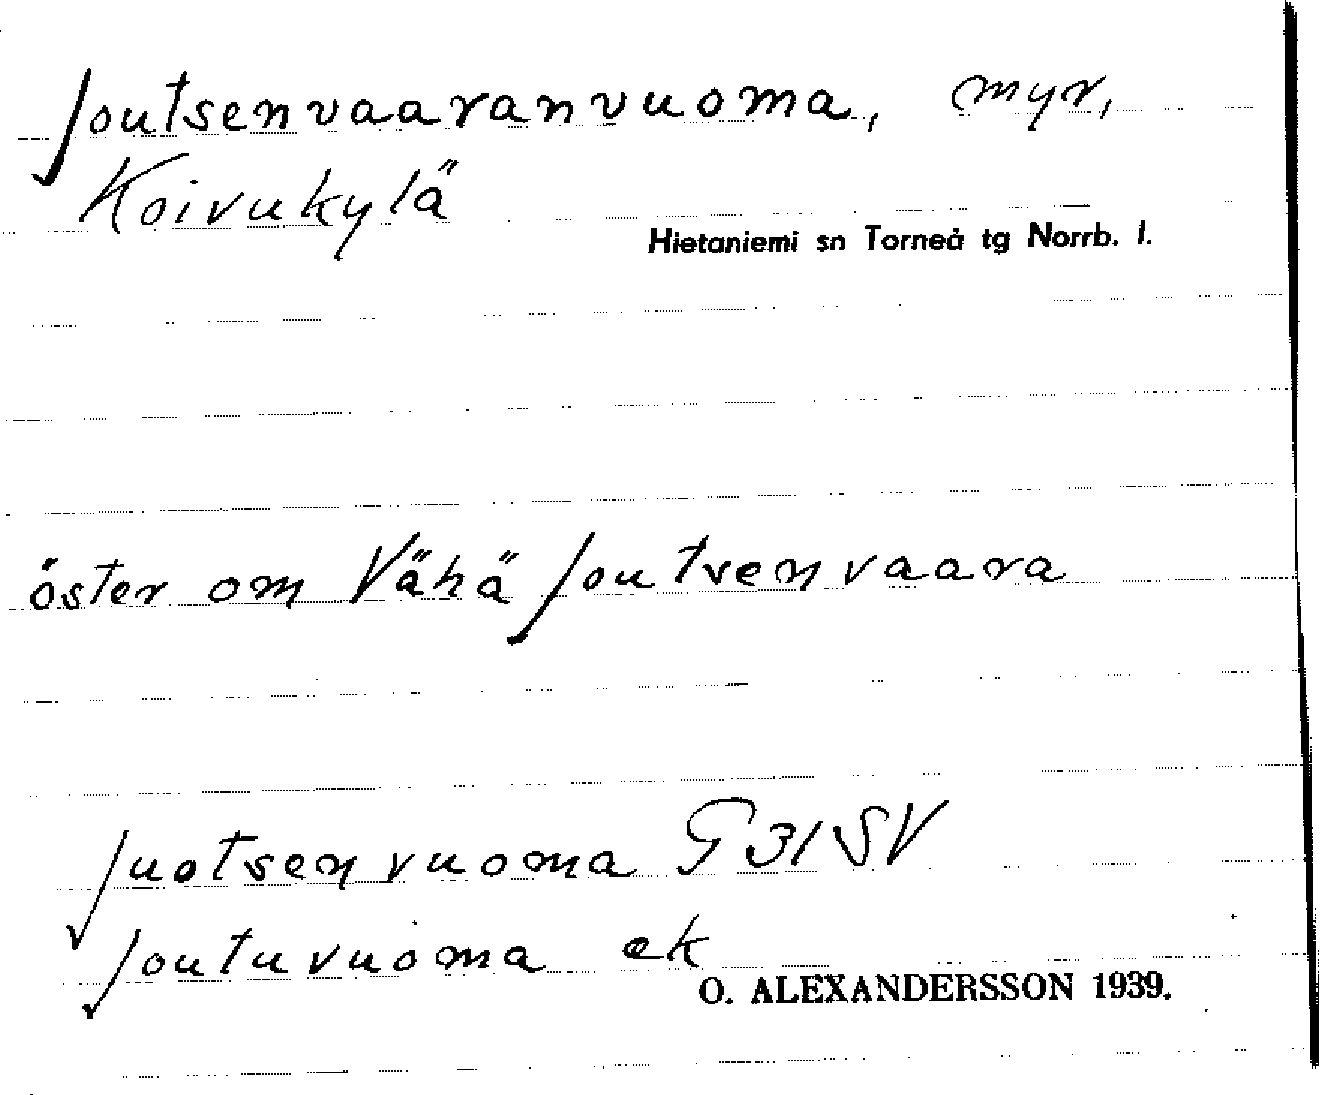 Joutsenvaaranvuoma, myr,
Koivukylä
Hietaniemi sn Torneå tg Norrb. l.
öster om Vähä Joutsenvaara
Juotsenvuoma G31SV
Joutuvuoma ek
O. ALEXANDERSSON 1939.